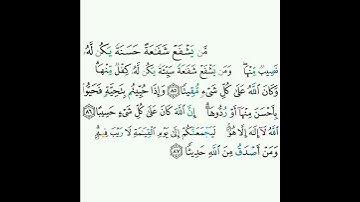 مَّن يَشْفَعْ شَفَٰعَةً حَسَنَةً يَكُن لَّهُۥ
نَصِيبٌ مِّنْهَا ۖ وَمَن يَشْفَعْ شَفَٰعَةً سَيِّئَةً يَكُن لَّهُۥ كِفْلٌ مِّنْهَا ۗ
وَكَانَ ٱللَّهُ عَلَىٰ كُلِّ شَىْءٍ مُّقِيتًا ٨٥ وَإِذَا حُيِّيتُم بِتَحِيَّةٍ فَحَيُّوا۟
بِأَحْسَنَ مِنْهَآ أَوْ رُدُّوهَآ ۗ إِنَّ ٱللَّهَ كَانَ عَلَىٰ كُلِّ شَىْءٍ حَسِيبًا ٨٦
ٱللَّهُ لَآ إِلَٰهَ إِلَّا هُوَ ۚ لَيَجْمَعَنَّكُمْ إِلَىٰ يَوْمِ ٱلْقِيَٰمَةِ لَا رَيْبَ فِيهِ ۗ
وَمَنْ أَصْدَقُ مِنَ ٱللَّهِ حَدِيثًا ٨٧